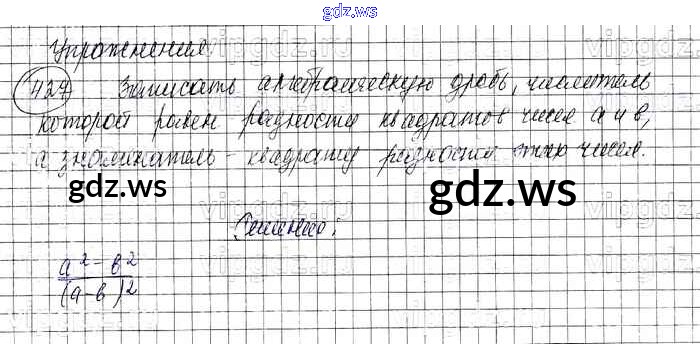 gdz.ws
Упражнения
427 Записать алгебраическую дробь, числитель
которой равен разности квадратов чисел a и b,
а знаменатель - квадрату разности этих чисел.
gdz.ws gdz.ws
Решение:
a² - b²
(a-b)²